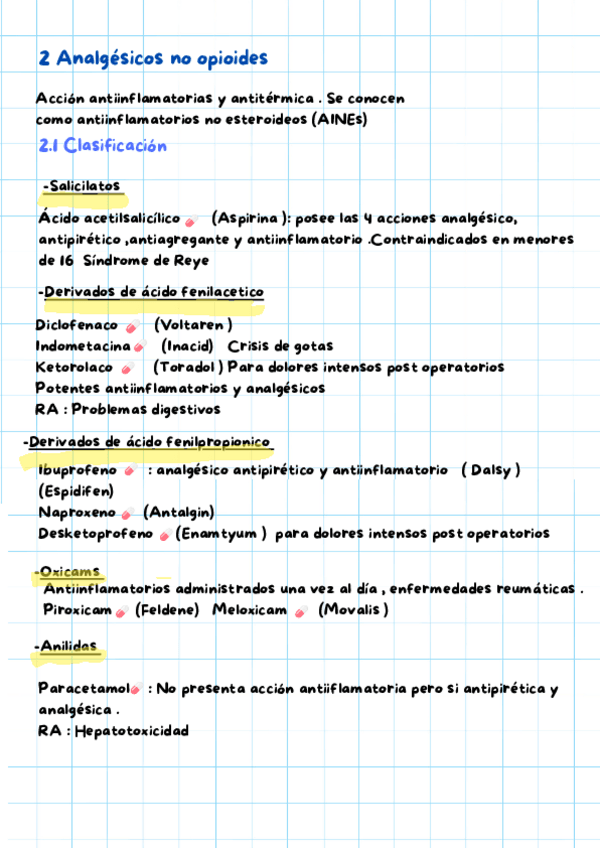 2 Analgésicos no opioides
Acción antiinflamatorias y antitérmica . Se conocen
como antiinflamatorios no esteroideos (AINEs)
2.1 Clasificación
-Salicilatos
Ácido acetilsalicílico (Aspirina ): posee las 4 acciones analgésico,
antipirético ,antiagregante y antiinflamatorio .Contraindicados en menores
de 16 Síndrome de Reye
-Derivados de ácido fenilacetico
Diclofenaco (Voltaren )
Indometacina (Inacid) Crisis de gotas
Ketorolaco (Toradol ) Para dolores intensos post operatorios
Potentes antiinflamatorios y analgésicos
RA : Problemas digestivos
-Derivados de ácido fenilpropionico
Ibuprofeno : analgésico antipirético y antiinflamatorio ( Dalsy )
(Espidifen)
Naproxeno (Antalgin)
Desketoprofeno (Enamtyum ) para dolores intensos post operatorios
-Oxicams
Antiinflamatorios administrados una vez al día , enfermedades reumáticas .
Piroxicam (Feldene) Meloxicam (Movalis )
-Anilidas
Paracetamol : No presenta acción antiiflamatoria pero si antipirética y
analgésica .
RA : Hepatotoxicidad